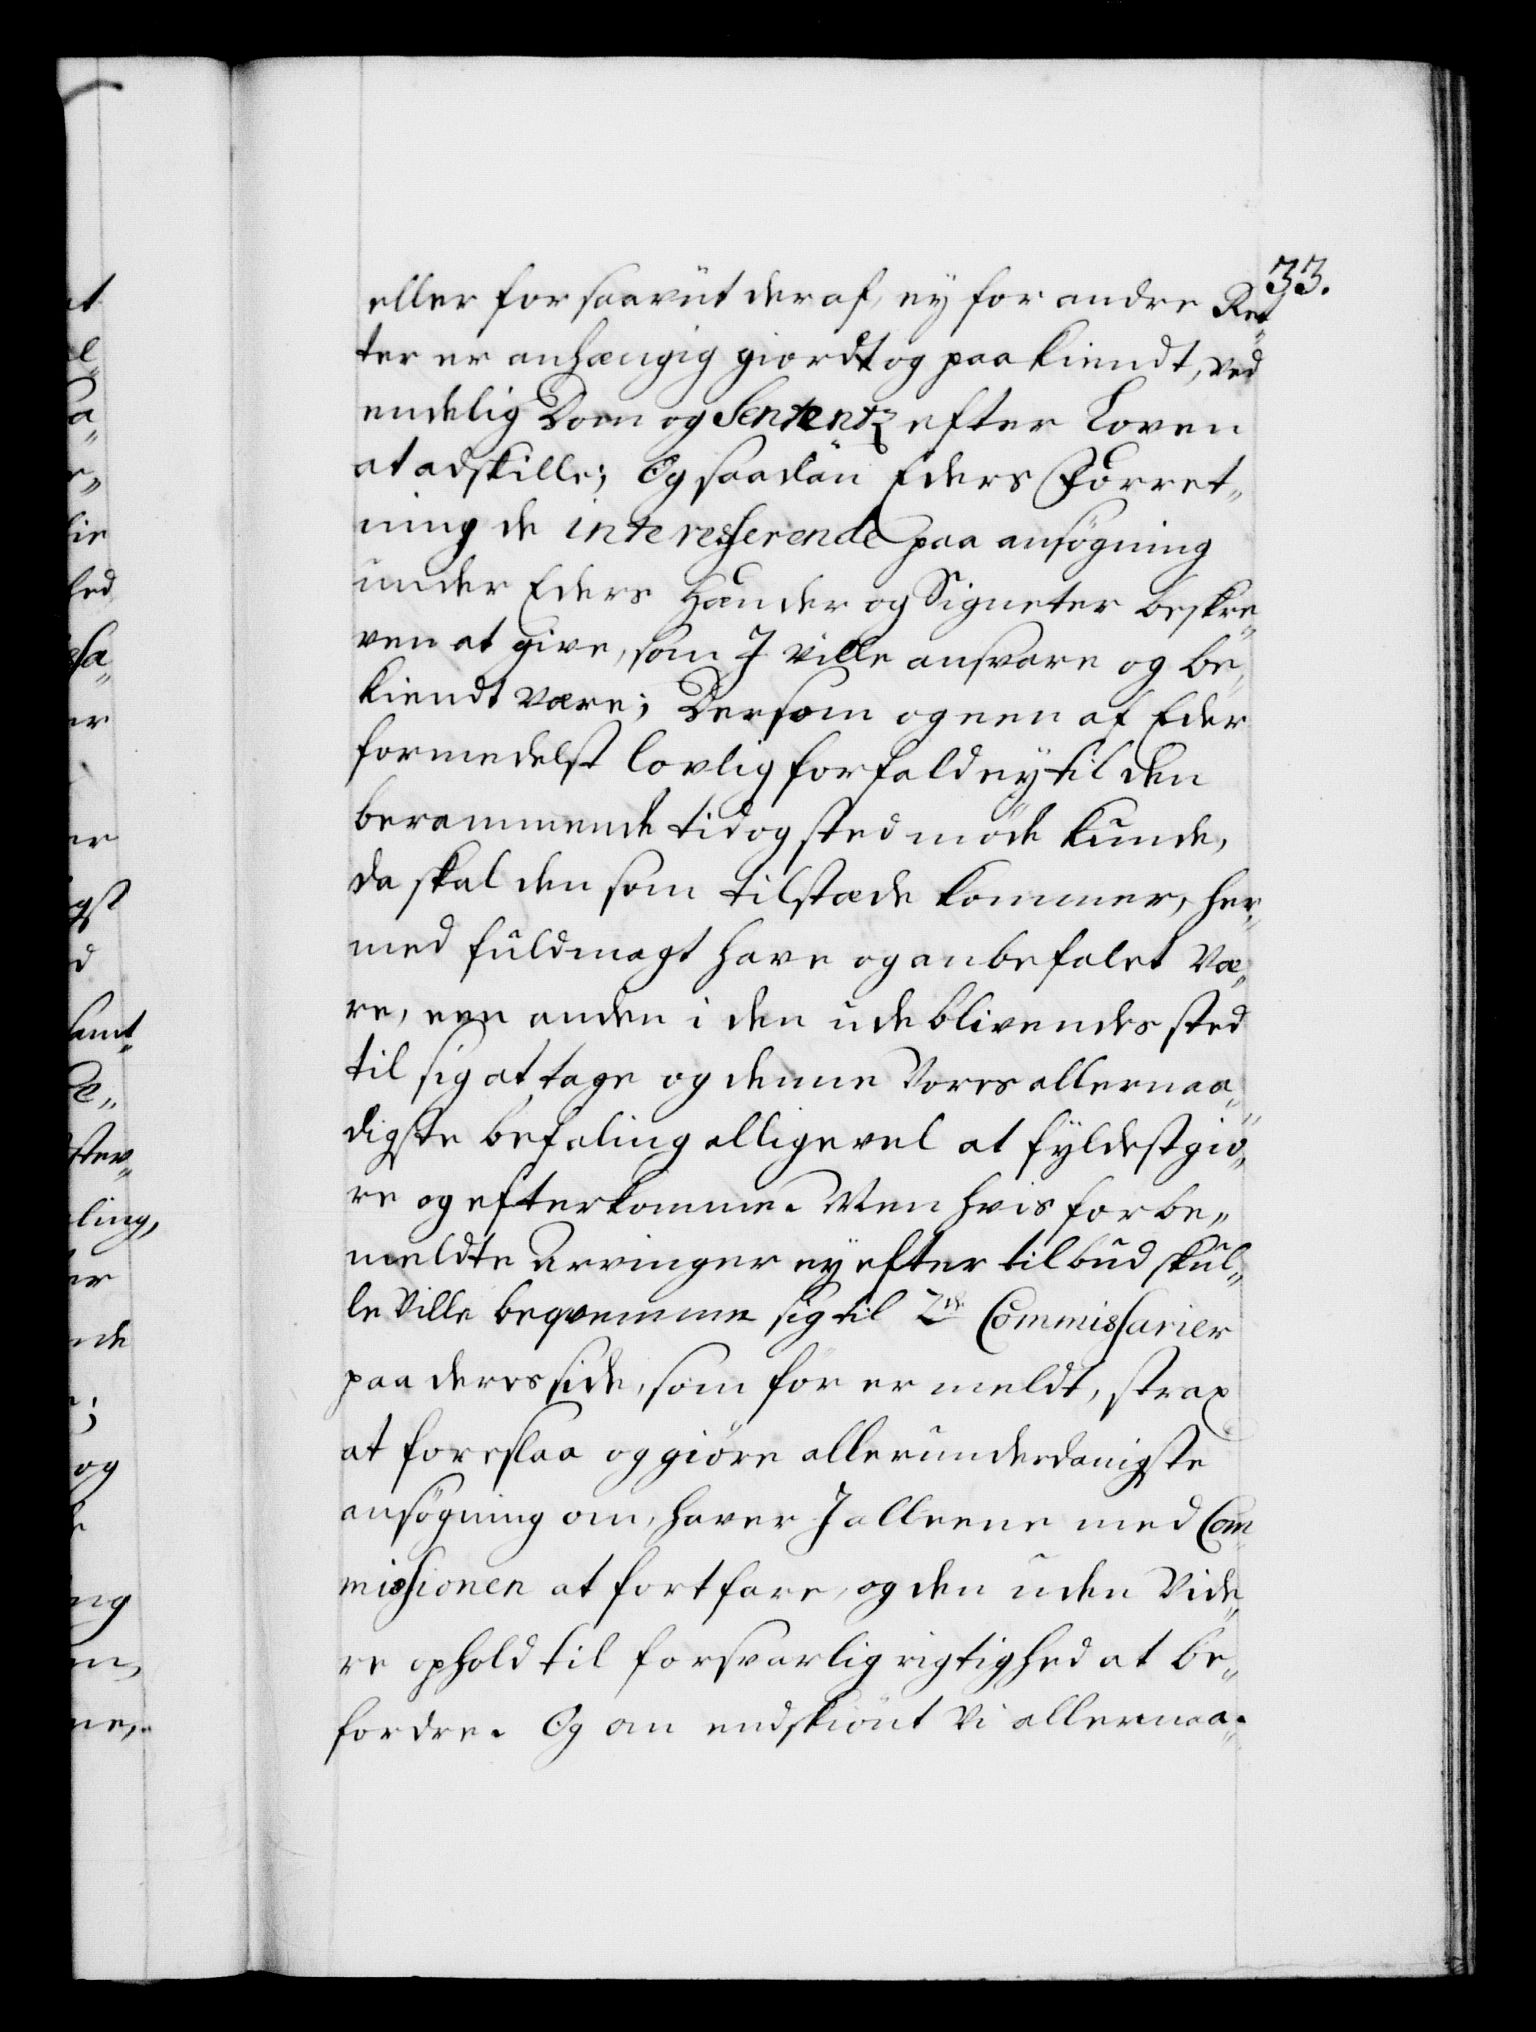 33.
eller forsaavüt deraf, ey for andre Ret„
ter er anhængig giordt og paakiendt, ved
endelig Dom og Sententz efter Loven
at adskille; Og saadan Eders Forret„
ning de interesserende paa ansøgning
under Eders Hænder og Signeter beskre„
ven at give, som I ville ansvare og be„
kiendt være; Dersom og een af Eder
formedelst lovlig forfald ey til den
berammende tid og sted møde kunde,
da skal den som tilstæde kommer, her„
med füldmagt have og anbefalet væ„
re, een anden i den udeblivendes sted
til sig at tage og denne Vores allernaa„
digste befaling alligevel at fyldestgiö„
re og efterkomme. Men hvis forbe„
meldte Arvinger ey efter tilbud skul„
le ville beqvemme sig til 2de Commissarier
paa deres side, som för er meldt, strax
at foreslaa og giöre allerunderdanigste
ansögning om, haver I alleene med Com„
missionen at fortfare, og den uden vide„
re ophold til forsvarlig rigtighed at be„
fordre. Og om endskiönt Vi allernaa„